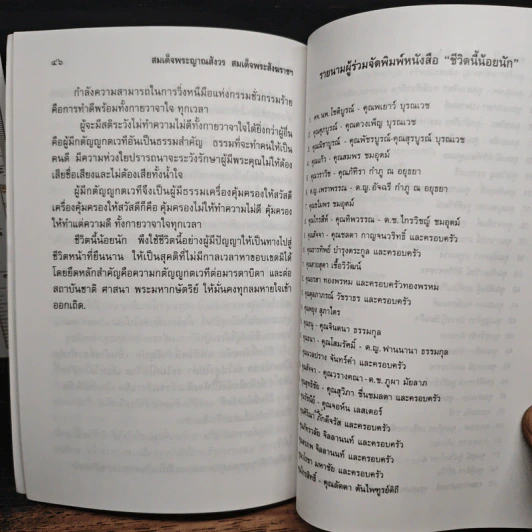 ๔๖
สมเด็จพระญาณสังวร สมเด็จพระสังฆราชฯ
กำลังความสามารถในการวิ่งหนีมือแห่งกรรมชั่วกรรมร้าย
คือการทำดีพร้อมทั้งกายวาจาใจ ทุกเวลา
ผู้จะมีสติระวังไม่ทำความไม่ดีทั้งกายวาจาใจได้ยิ่งกว่าผู้อื่น
คือผู้มีกตัญญูกตเวทีอันเป็นธรรมสำคัญ ธรรมที่จะทำคนให้เป็น
คนดี มีความห่วงใยปรารถนาจะระวังรักษาผู้มีพระคุณไม่ให้ต้อง
เสียชื่อเสียงและไม่ต้องเสียทั้งน้ำใจ
ผู้มีกตัญญูกตเวทีจึงเป็นผู้มีธรรมเครื่องคุ้มครองให้สวัสดี
เครื่องคุ้มครองให้สวัสดีก็คือ คุ้มครองไม่ให้ทำความไม่ดี คุ้มครอง
ให้ทำแต่ความดี ทั้งกายวาจาใจ ทุกเวลา
ชีวิตนี้น้อยนัก พึงใช้ชีวิตนี้อย่างผู้มีปัญญาให้เป็นทางไปสู่
ชีวิตหน้าที่ยืนนาน ให้เป็นสุคติที่ไม่มีกาลเวลาหาขอบเขตมิได้
โดยยึดหลักสำคัญคือความกตัญญูกตเวทีต่อมารดาบิดา และต่อ
สถาบันชาติ ศาสนา พระมหากษัตริย์ ให้มั่นคงทุกลมหายใจเข้า
ออกเถิด.
รายนามผู้ร่วมจัดพิมพ์หนังสือ "ชีวิตนี้น้อยนัก"
โชติบูรณ์ - คุณพเยาว์ บูรณเวช
คุณดวงเพ็ญ บูรณเวช
คุณพัชรบูรณ์-คุณสุรบูรณ์ บูรณเวช
คุณสมพร ชมอุตม์
คุณกัทีรา กำภู ณ อยุธยา
ด.ญ.อัจฉรี กำภู ณ อยุธยา
ชมอุตม์
คุณทิพวรรณ - ด.ช.ไกรวิชญ์ ชมอุตม์
คุณชลดา กาญจนวริทธิ์ และครอบครัว
บำรุงตระกูล และครอบครัว
เชื้อวิวัฒน์
ทองพรหม และครอบครัวทองพรหม
วัชราธร และครอบครัว
สุภาไตร
คุณจินตนา ธรรมกุล
คุณโสมรัศมิ์ - ด.ญ. ฟานนานา ธรรมกุล
จันทร์คำ และครอบครัว
คุณวรางคณา - ด.ช. ภูผา มัยลาภ
คุณสุวิภา ชื่นชมลดา และครอบครัว
คุณจอห์น เลสเตอร์
ภักดีจรัส และครอบครัว
จิลลานนท์ และครอบครัว
จิลลานนท์ และครอบครัว
มหาชัย และครอบครัว
คุณลัดดา ตันไพฑูรย์ดิถี